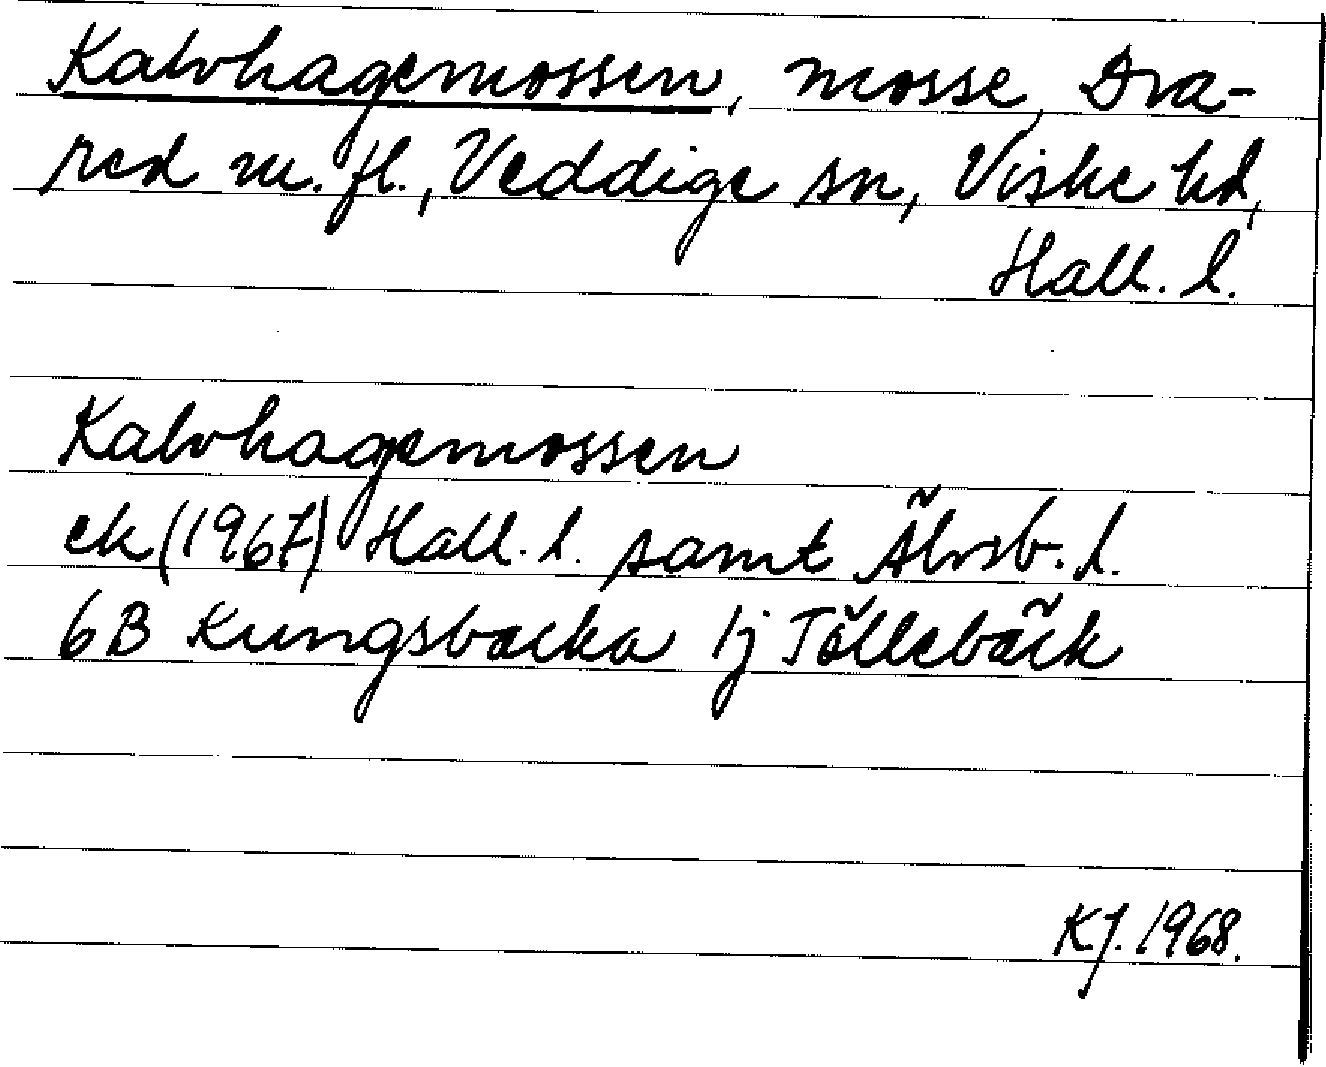 Kalvhagemossen, mosse, Dra-
red m. fl., Veddige sn, Viske hd,
Hall. l.
Kalvhagemossen
ek (1967) Hall. l. samt Älvsb. l.
6B Kungsbacka 1j Töllebäck
KJ. 1968.